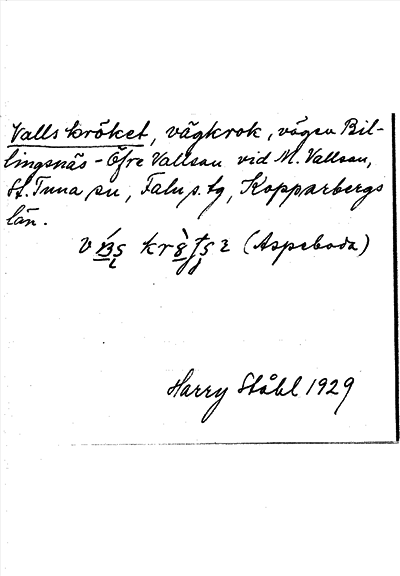 Valls kröket, vägkrok, vägen Bil-
lingsnäs - Öfre Vallsan vid M. Vallsan,
St. Tuna sn, Falu s. tg, Kopparbergs
län.
(Aspeboda)
Harry Ståhl 1929